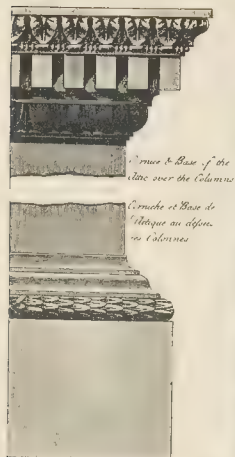 Cornice & Base of the
Attic over the Columns
Corniche et Base de
l'Attique au dessus
des Colonnes